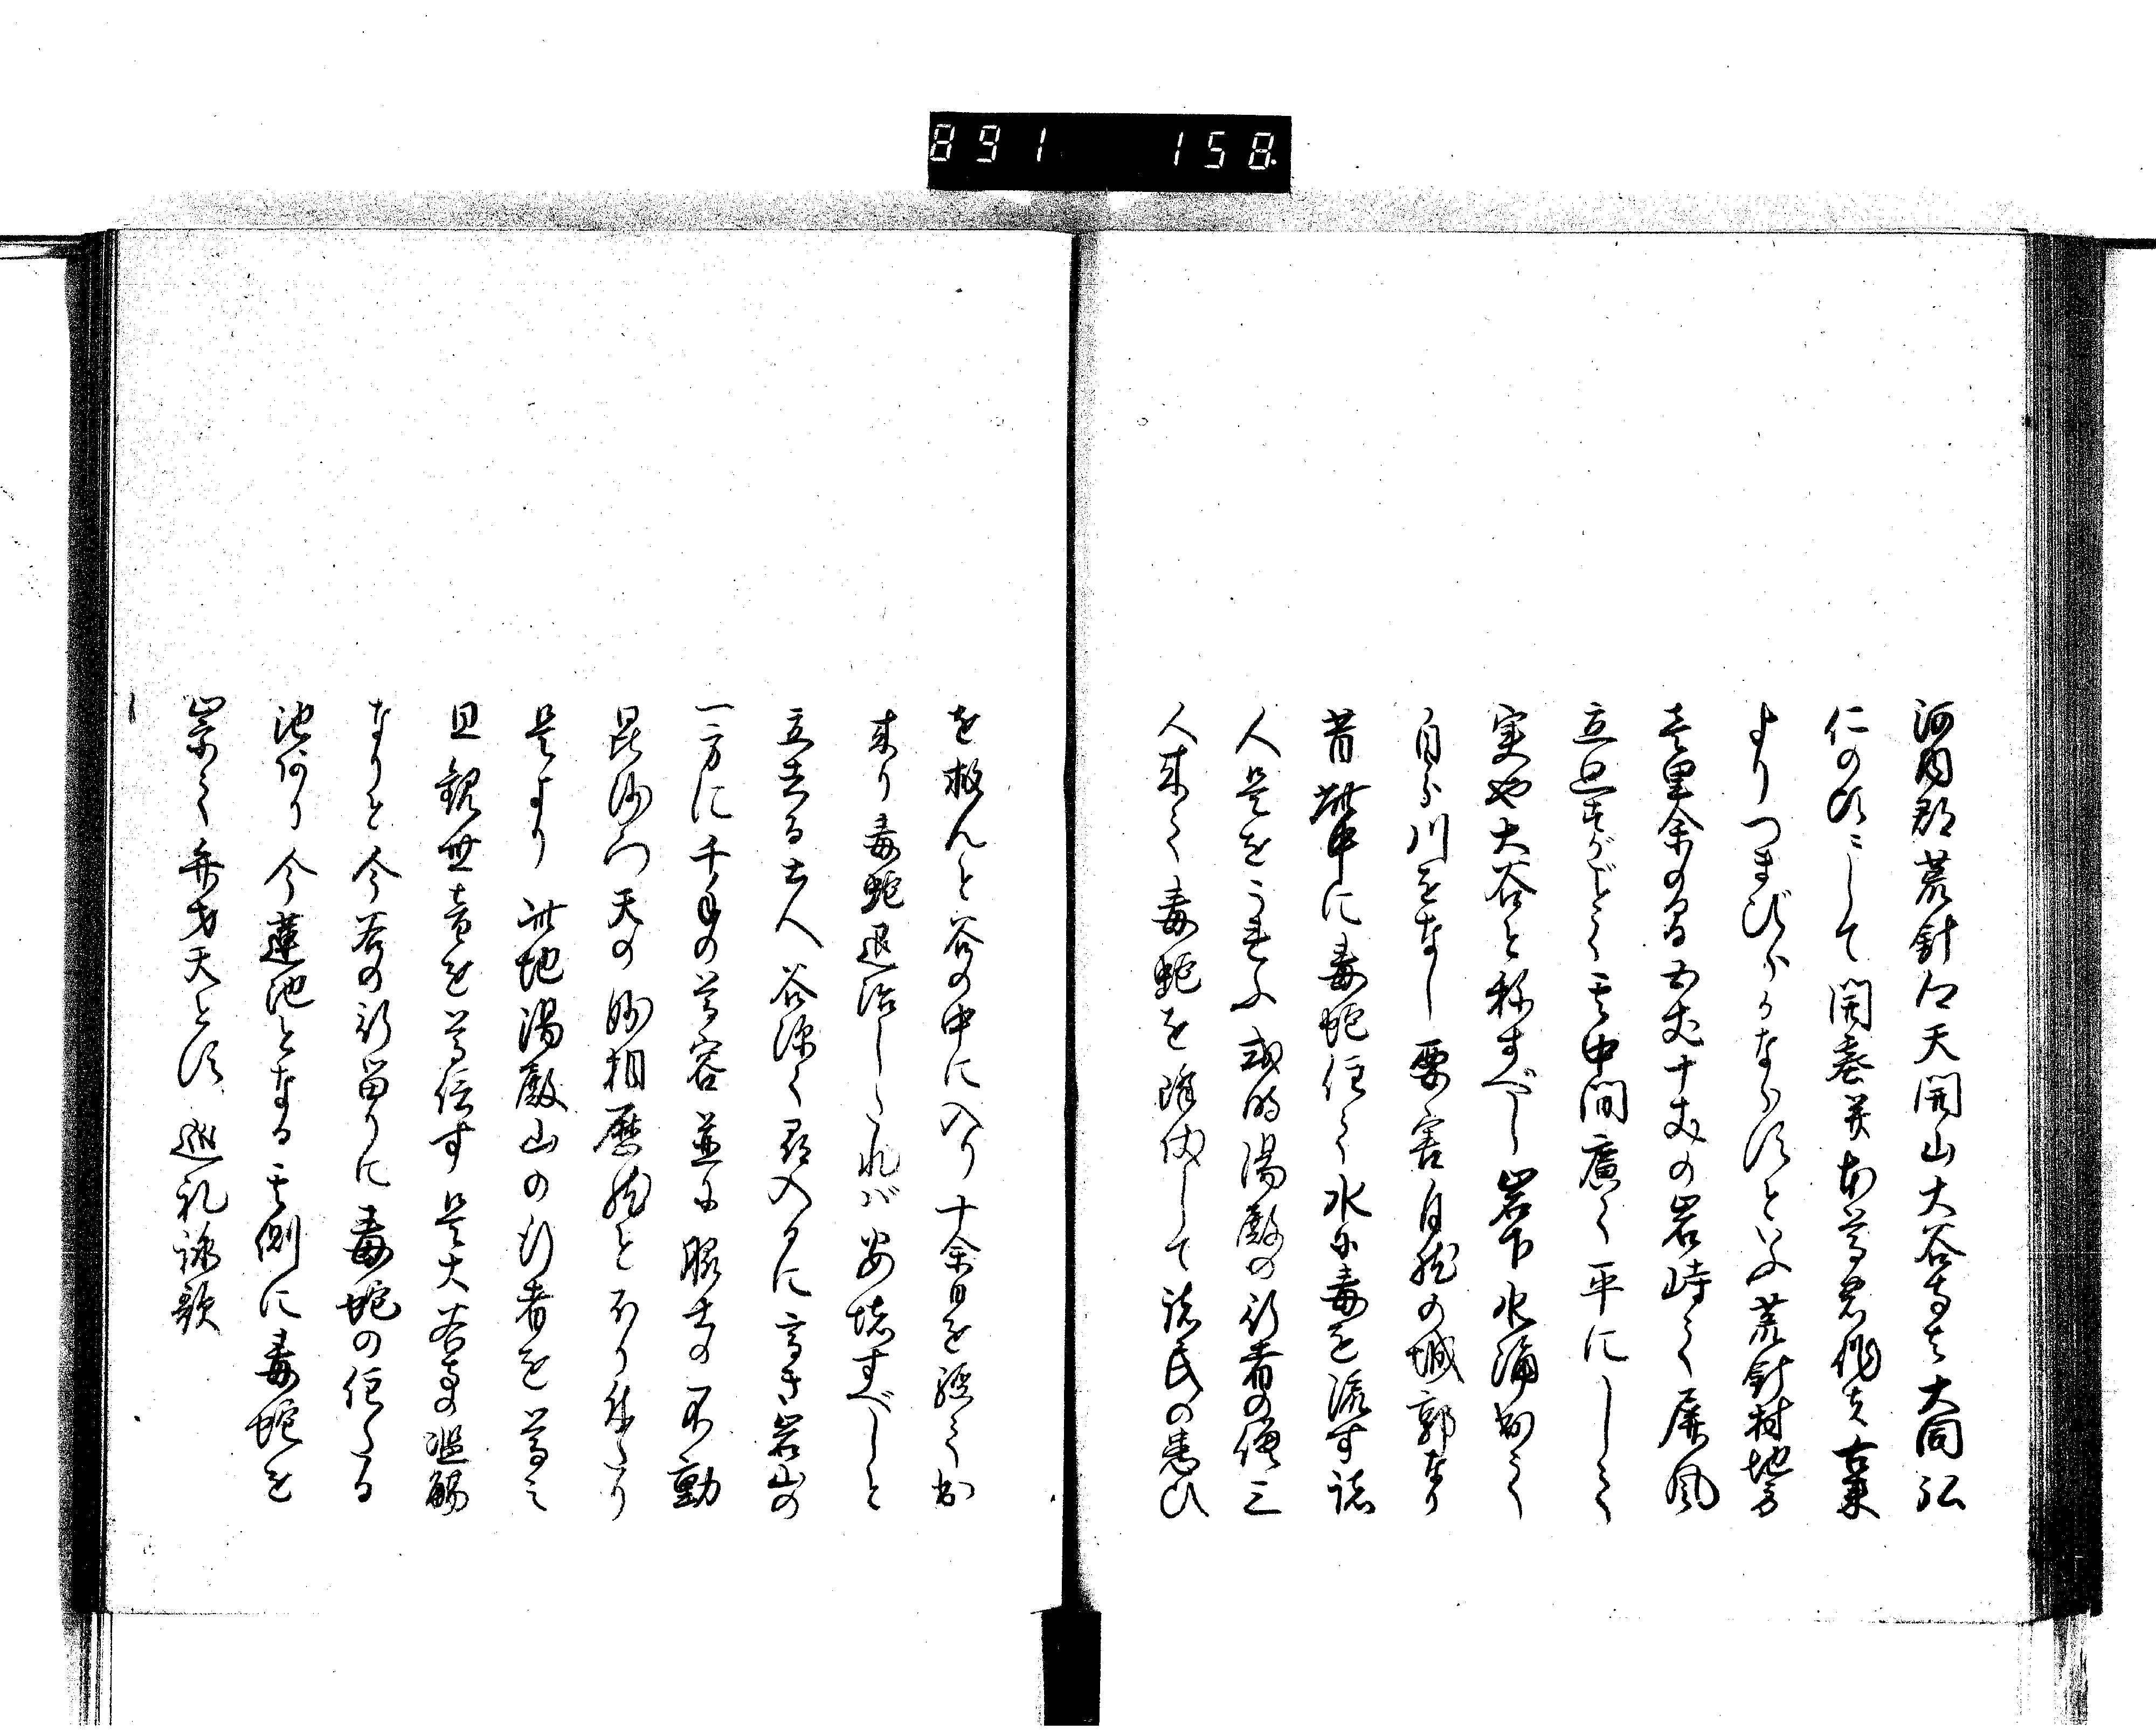 891 158.
河内郡荒針村天開山大谷寺ハ大同弘
仁の頃にして開基并本尊の作
よりつまびらかならずといふ荒針村地方
壱里余の間五丈十丈の岩峙て屏風
立廻すがごとく其中間廣く平にして
実や大谷と称すべし岩下水涌出て
自ら川をなし要害自然の城郭なり
昔此中に毒蛇住て水に毒を流す諸
人是をうれふ或時湯殿の行者の僧三
人来て毒蛇を降伏して諸民の患ひ
を救んと谷の中に入り十余日を経て出
来り毒蛇退治したれバ安堵すべしと
立去る土人谷深く尋入るに高き岩山の
一方に千手の尊容並に脇士の不動
毘沙門天の妙相歴然とあり
是より此地湯殿山の行者を尊ミ
且観世音を尊信す是大谷寺の濫觴
なりと今谷の行留りに毒蛇の住たる
池阿り今蓮池となる其側に毒蛇を
崇て弁才天とす巡礼詠歌